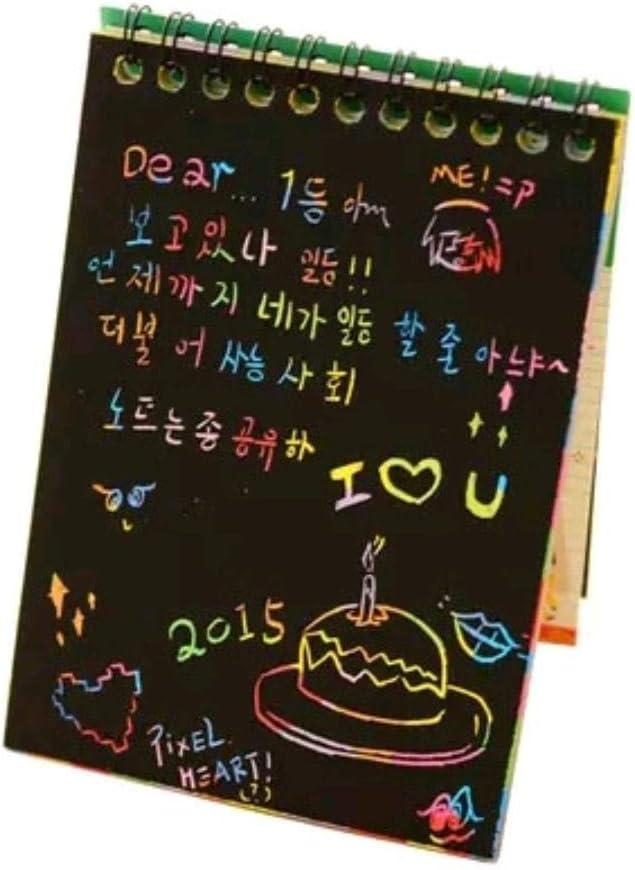 Dear... 1등 am
ME! =P
보고있나 일등!!
언제까지 네가 일등 할 줄 아느냐~
더불어 사능 사회
노트는 좀 공유하
I ♡ U
2015
PiXEL
HEART!
(?)